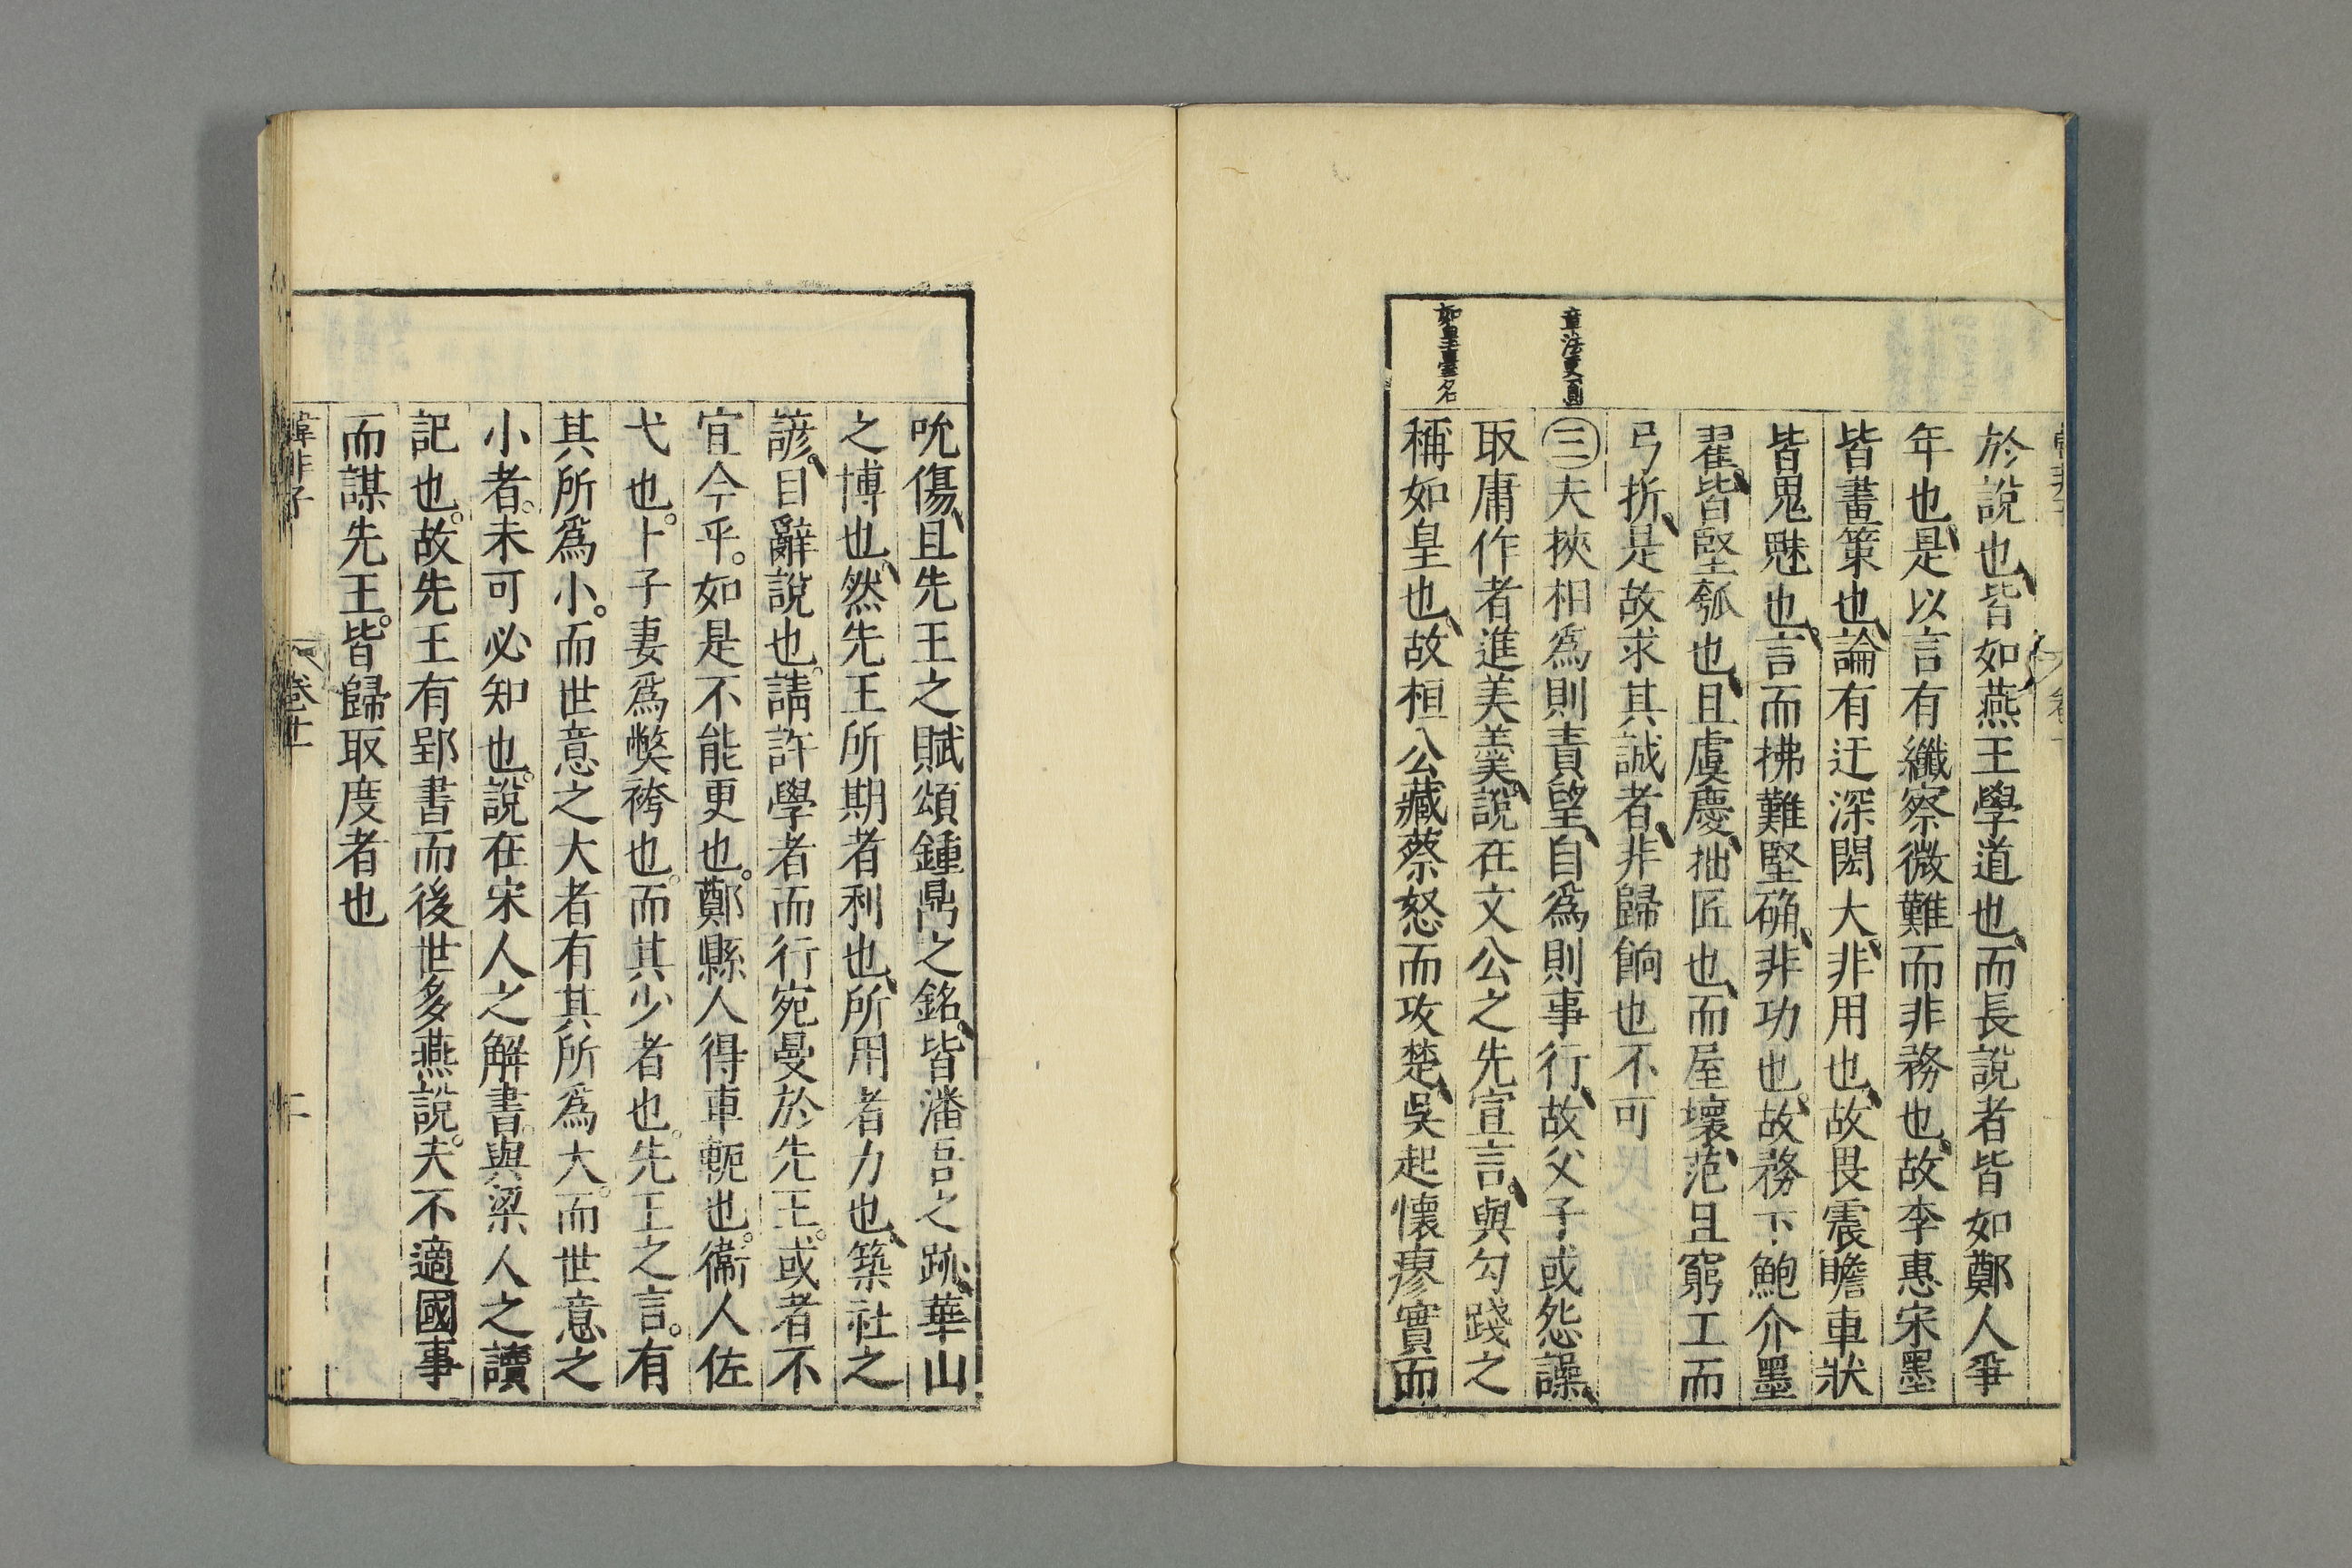 章法更圓
如皇臺名
於說也、皆如燕王學道也、而長說者皆如鄭人爭
年也、是以言有纖察微難而非務也、故李惠宋墨
皆畫策也、論有迂深閎大、非用也、故畏震瞻車狀
皆鬼魅也、言而拂難堅确、非功也、故務下鮑介墨
翟、皆堅瓠也、且虞慶、拙匠也、而屋壞、范且窮工而
弓折、是故求其誠者、非歸餉也不可
㊂夫挾相爲則責望、自爲則事行、故父子或怨譟、
取庸作者進美羹、說在文公之先宣言、與勾踐之
稱如皇也、故桓公藏蔡怒而攻楚、吳起懷瘳實而
吮傷、且先王之賦頌鍾鼎之銘、皆潘吾之跡、華山
之博也、然先王所期者利也、所用者力也、築社之
諺、目辭說也。請許學者而行宛曼於先王。或者不
宜今乎。如是不能更也。鄭縣人得車軛也。衞人佐
弋也。卜子妻爲獘袴也。而其少者也。先王之言。有
其所爲小。而世意之大者有其所爲大。而世意之
小者。未可必知也。說在宋人之解書。與梁人之讀
記也。故先王有郢書而後世多燕說。夫不適國事
而謀先王。皆歸取度者也
韓非子　卷十一　二